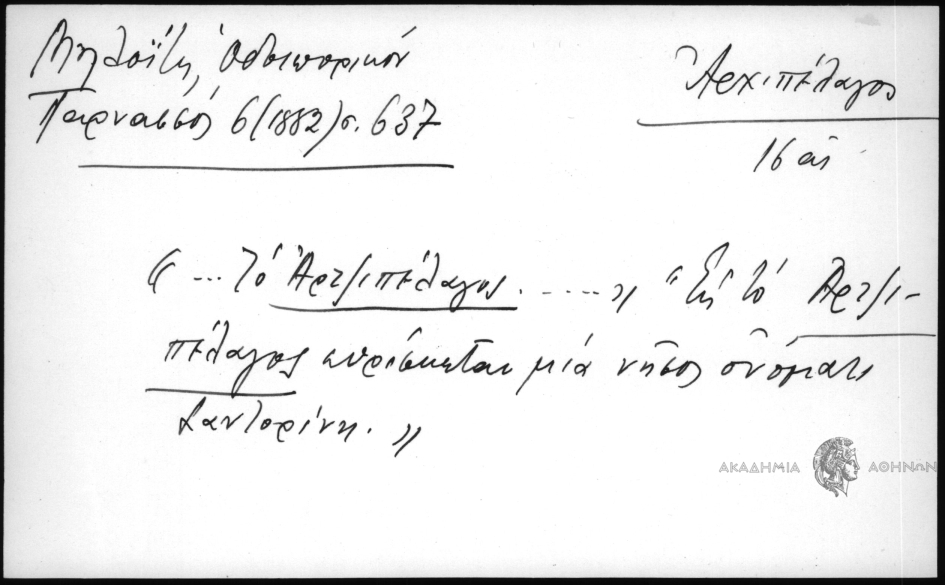 Μηλοΐτη, Ὁδοιπορικόν
Παρνασσός 6(1882)σ. 637
Ἀρχιπέλαγος
16 αι
« ... τό Ἀρτζιπέλαγος. ..... » "Εἰς τό Ἀρτζι-
πέλαγος εὑρίσκεται μία νῆσος ὀνόματι
Σαντορίνη. »
ΑΚΑΔΗΜΙΑ ΑΘΗΝΩΝ